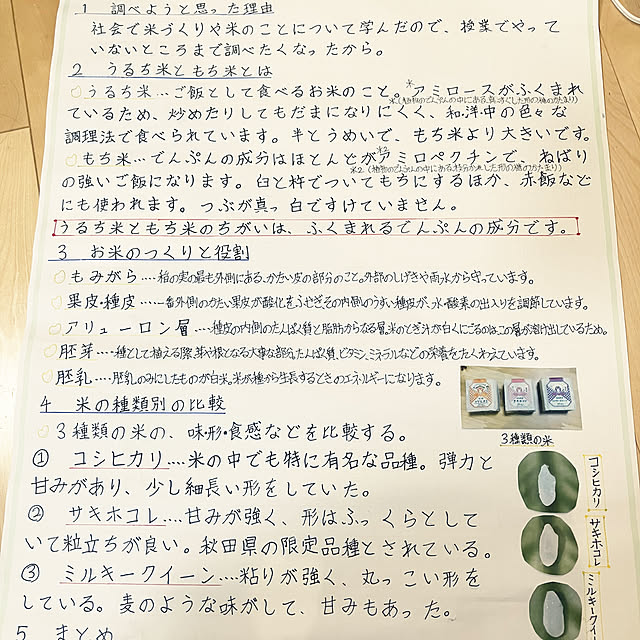 1 調べようと思った理由
社会で米づくりや米のことについて学んだので、授業でやって
いないところまで調べたくなったから。
2 うるち米ともち米とは
うるち米…ご飯として食べるお米のこと。アミロースがふくまれ
ているため、炒めたりしてもだまになりにくく、和洋中の色々な
調理法で食べられています。半とうめいで、もち米より大きいです。
もち米…でんぷんの成分はほとんとがアミロペクチンで、ねばり
の強いご飯になります。臼と杵でついてもちにするほか、赤飯など
にも使われます。つぶが真っ白ですけていません。
うるち米ともち米のちがいは、ふくまれるでんぷんの成分です。
3 お米のつくりと役割
もみがら……稲の実の最も外側にある、かたい皮の部分のこと。外部のしげきや雨水から守っています。
果皮・種皮……一番外側のかたい果皮が酸化をふせぎその内側のうすい種皮が、水・酸素の出入りを調節しています。
アリューロン層……種皮の内側のたんぱく質と脂肪からなる層。米のとぎ汁が白くにごるのは、この層が溶け出しているため。
胚芽……種として植える際、芽や根となる大事な部分。たんぱく質、ビタミン、ミネラルなどの栄養をたくわえています。
胚乳……胚乳のみにしたものが白米。米が種から生長するときのエネルギーになります。
4 米の種類別の比較
3種類の米の、味・形・食感などを比較する。
3種類の米
① コシヒカリ……米の中でも特に有名な品種。弾力と
甘みがあり、少し細長い形をしていた。
② サキホコレ……甘みが強く、形はふっくらとして
いて粒立ちが良い。秋田県の限定品種とされている。
③ ミルキークイーン……粘りが強く、丸っこい形を
している。麦のような味がして、甘みもあった。
コシヒカリ
サキホコレ
ミルキークイ
5 まとめ